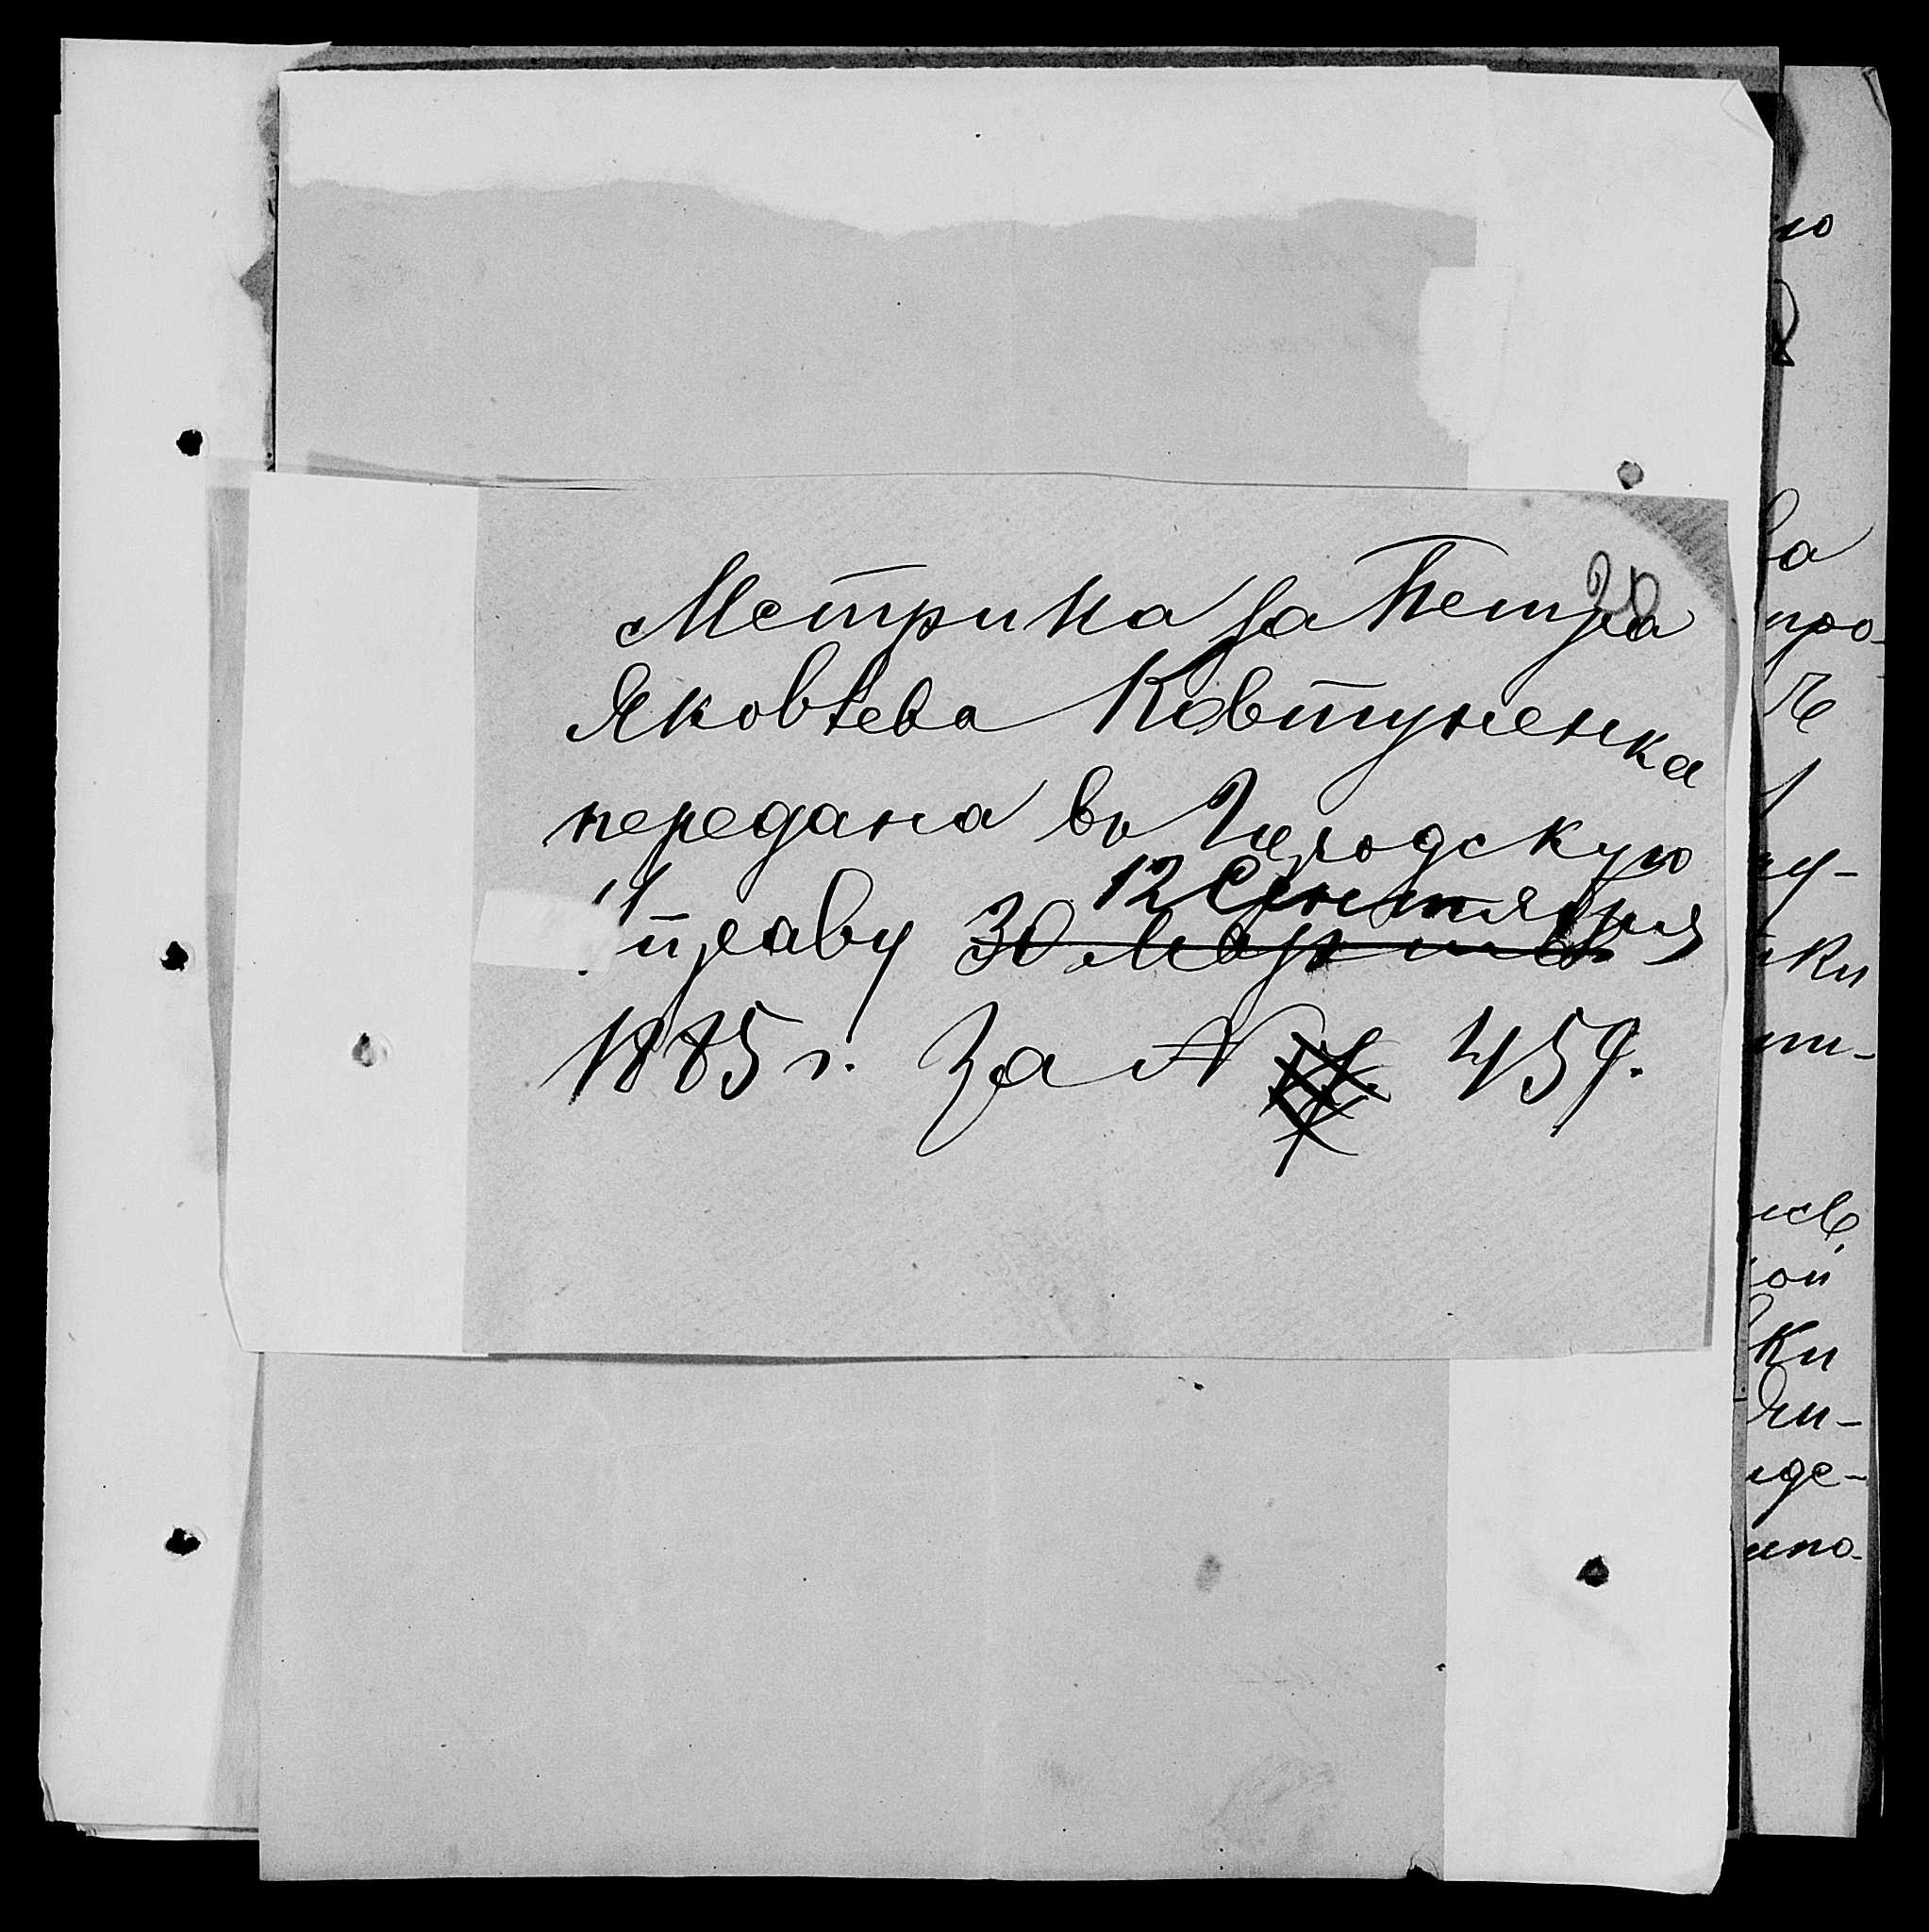 20
Метрика за Петра
Яковлева Ковтуненка
передана въ Городскую
Управу 30 Марта 12 Сентября
1885 г. За № 459.
ю
ва
про-
ки
ой
ки